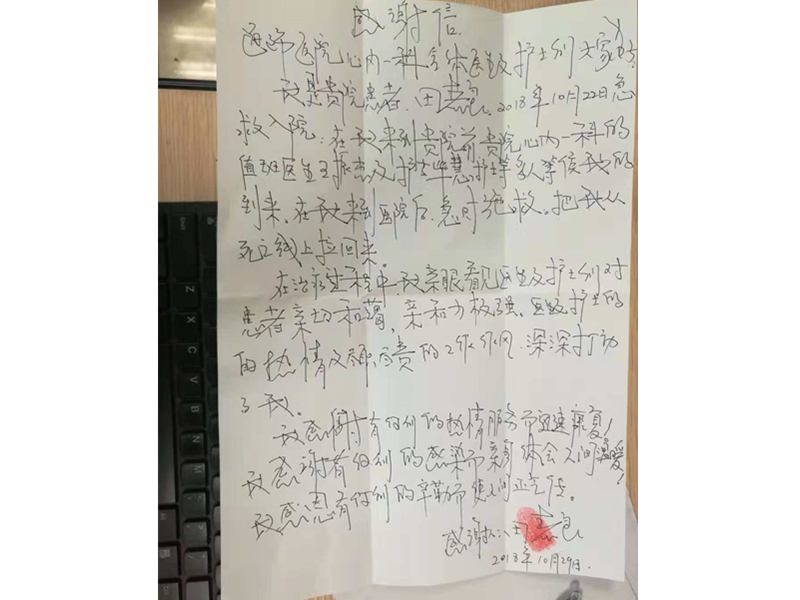 感谢信
医院心内一科全体医生及护士们大家好:
我是贵院患者田志。2018年10月22日急
救入院:在我来到贵院前贵院心内一科的
值班医生王振杰及护士慧护士等多人等侯我的
到来、在我来到医院后.急时抢救。把我从
死亡线上拉回来。
在治疗过程中.我亲眼看见医生及护士们对
患者亲切和蔼,亲和力极强、医生及护士的
的热情及的工作作风.深深打动
了我、
我感谢有你们的热情服务而迅速康复!
我感谢有你们的感染而体会人间温暖!
我感恩有你们的辛勤而使人间正气传。
感谢人:田志
2018年10月29日.
V
B
N
M
C
X